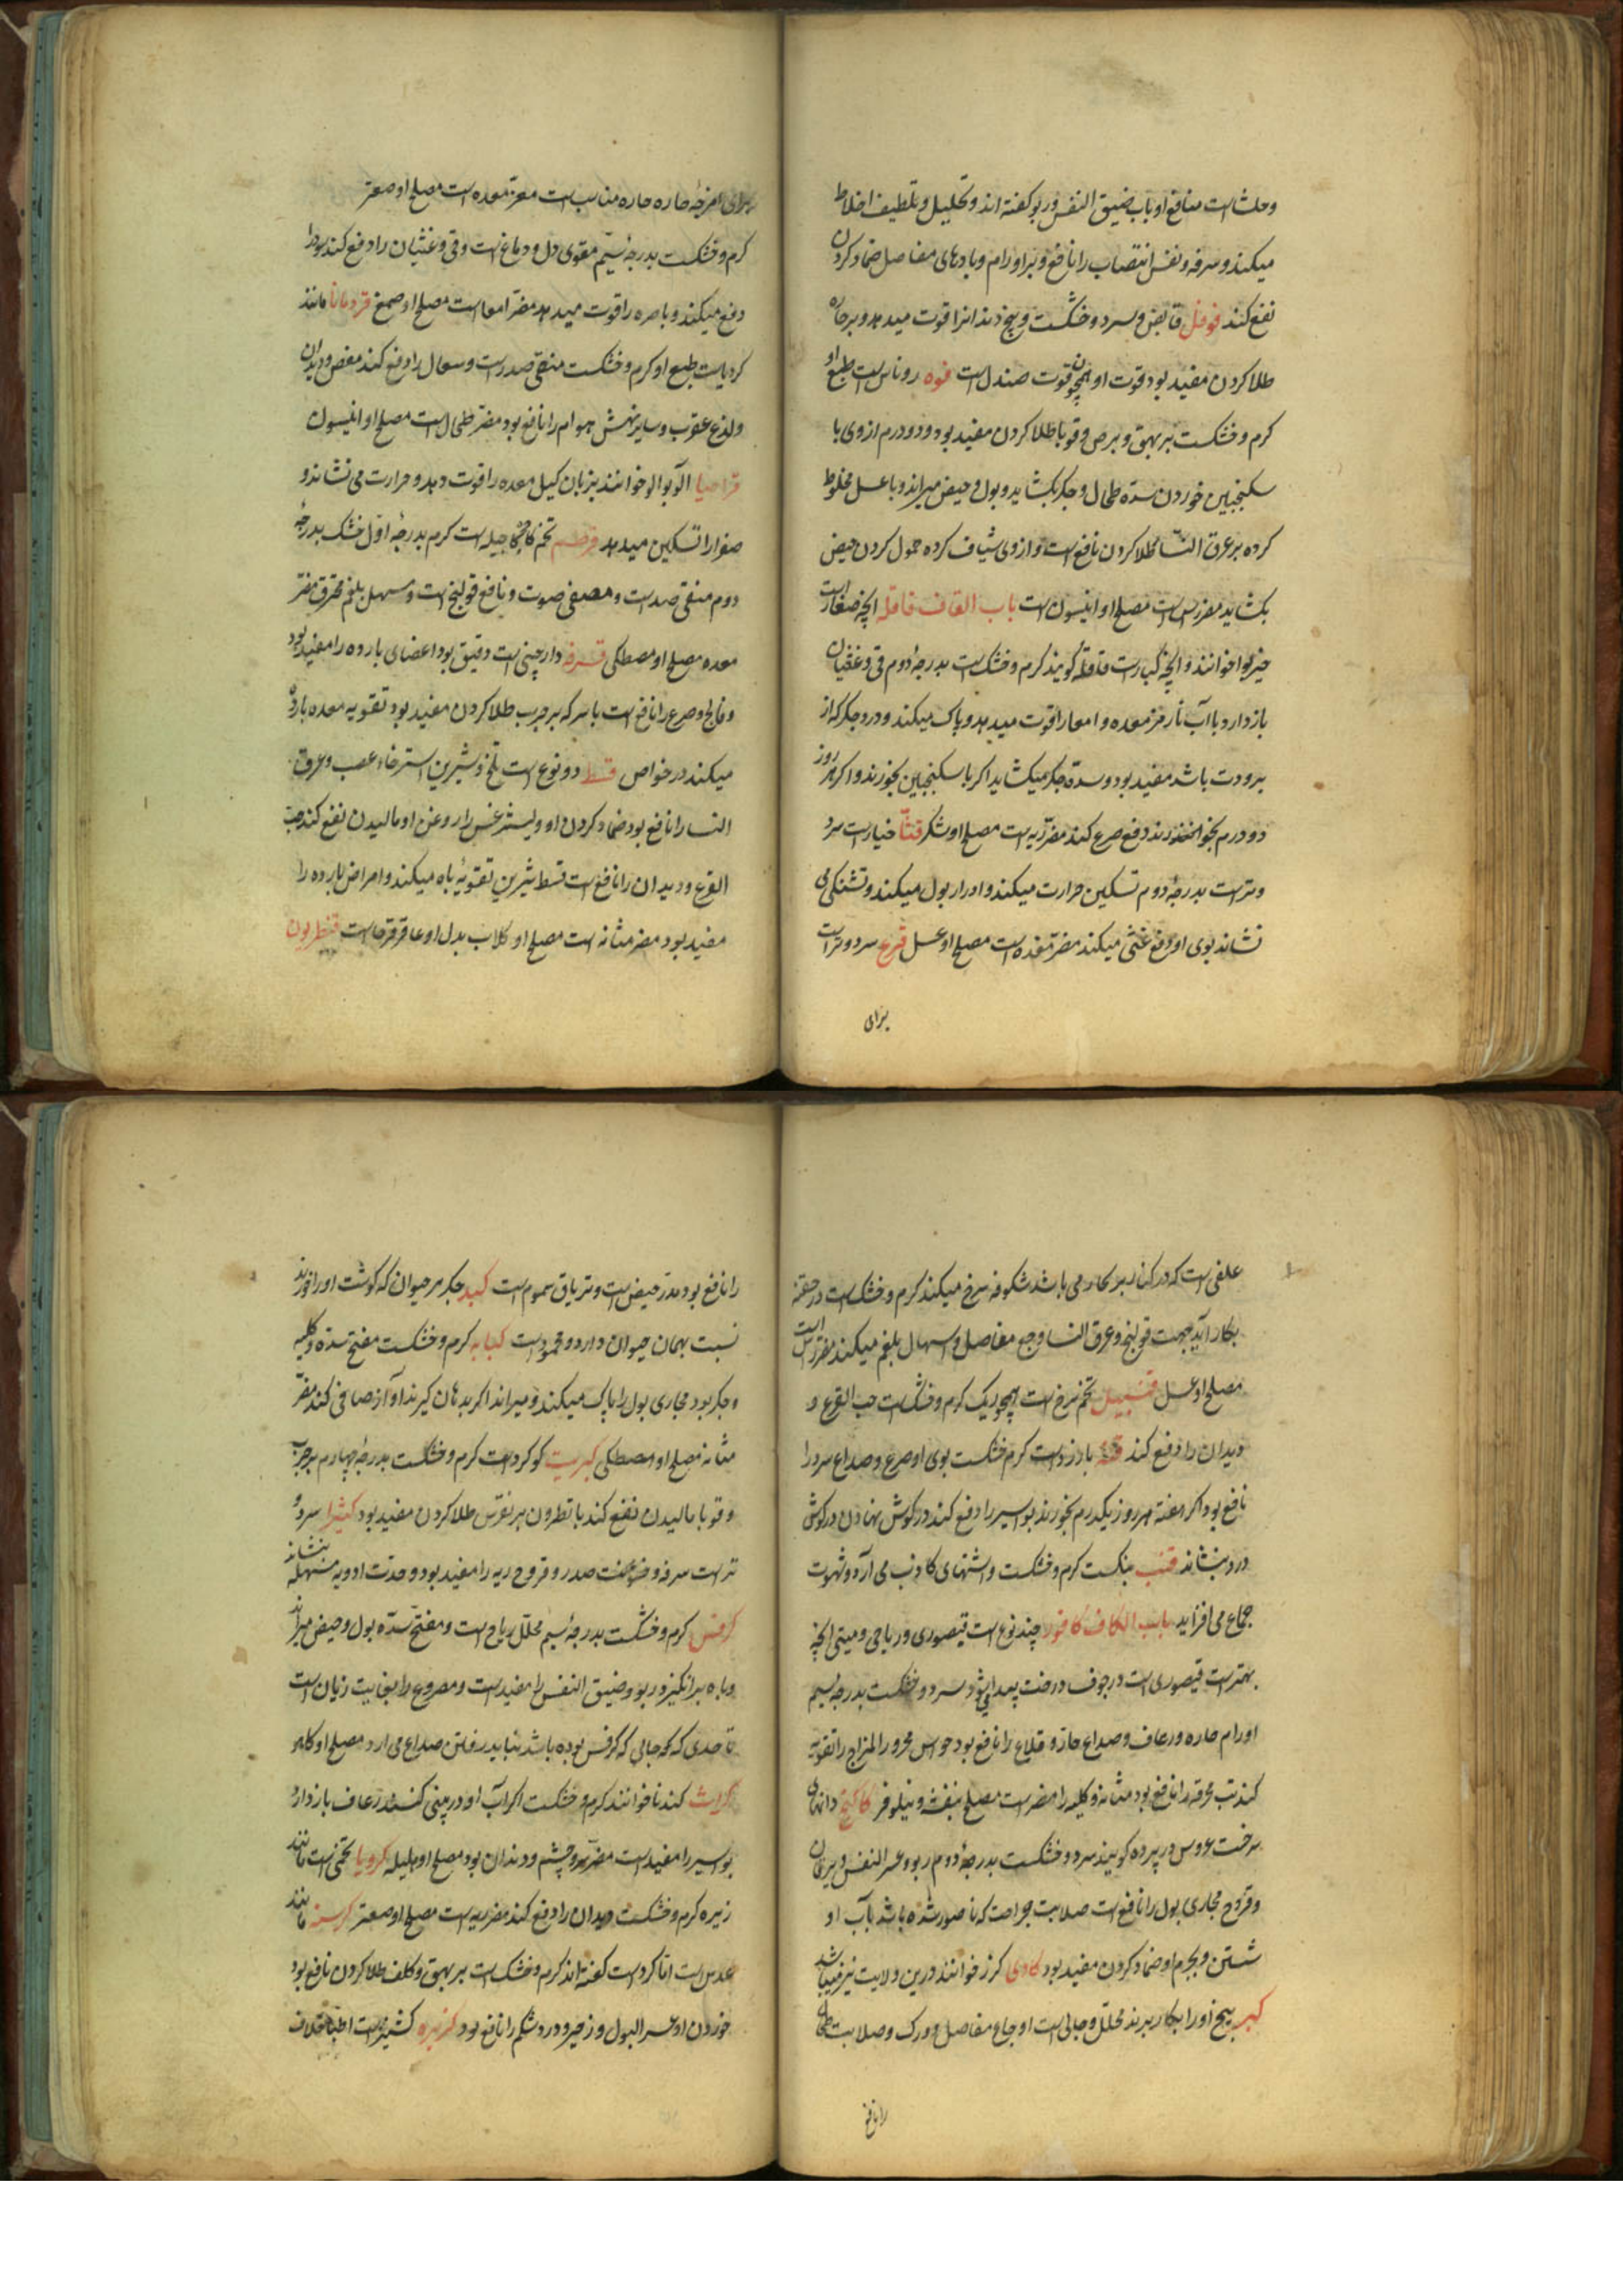 وحلشاست منافع او باب ضیق النفس و ربو کفته اند و تحلیل و تلطیف اخلاط
میکند و سرفه و نفس انتصاب را نافع و بر اورام و بادهای مفاصل ضماد کردن
نفع کند فوفل قابض و سرد و خشکست و بیخ دندانرا قوت میدهد و بر حاره
طلا کردن مفید بود قوت او همچون قوت صندل است فوه روناس است طبع او
کرم و خشکست بر بهق و برص و قوبا طلا کردن مفید بود و دو درم از وی با
سکنجبین خوردن سده طحال و جکر بکشاید و بول و حیض میراند و با عسل مخلوط
کرده بر عرق النسا طلا کردن نافع است و از وی شیاف کرده حمول کردن حیض
بکشاید مضر سراست مصلح او انیسون است باب القاف قاقله انچه صغار است
خیربوا خوانند و انچه کبارست قاقله کویند کرم و خشک است بدرجه دوم قی و غثیان
باز دارد با آب نار مز معده و امعا را قوت میدهد و پاک میکند و درد جکر که از
برودت باشد مفید بود و سده جکر میکشاید اکر با سکنجبین بخورند و اکر هر روز
دو درم بخورند دفع صرع کند مضر ریه است مصلح او شکر قثا خیارست سرد
و تر است بدرجه دوم تسکین حرارت میکند و ادرار بول میکند و تشنکی می
نشاند بوی او دفع غشی میکند مضر معده است مصلح او عسل قرع سرد و تر است
برای
برای امزجه حاره مناسب است مضر معده است مصلح او صعتر
کرم و خشکست بدرجه سیم مقوی دل و دماغ است و قی و غثیان را دفع کند سودا
دفع میکند و باصره را قوت میدهد مضر امعا است مصلح او صمغ قردمانا مانند
کرویاست طبع او کرم و خشکست منقی صدرست و سعال را دفع کند مغص و دیدان
و لدغ عقرب و سایر نهش هوام را نافع بود مضر طحال است مصلح او انیسون
قراصیا آلو بالو خوانند بزبان کیل معده را قوت دهد و حرارت می نشاند و
صفرا را تسکین میدهد قرطم تخم کاجیله است کرم بدرجه اول خشک بدرجه
دوم منقی صدر است و مصفی صوت و نافع قولنج است و مسهل بلغم محترق مضر
معده مصلح او مصطکی قرفه دارچینی است دقیق بود اعضای بارده را مفید بود
و فالج و صرع را نافع است با سرکه بر جرب طلا کردن مفید بود تقویه معده بارده
میکند در خواص قسط دو نوع است تلخ و شیرین استرخاء عصب و عرق
النسا را نافع بود ضماد کردن او و لیثرغس را روغن او مالیدن نفع کند حب
القرع و دیدان را نافع است قسط شیرین تقویه باه میکند و امراض بارده را
مفید بود مضر مثانه است مصلح او کلاب بدل او عاقرقرحاست قنطریون
علفی است که در کنار می باشد شکوفه سرخ میکند کرم و خشک است در حقنه
بکار آید جهت قولنج و عرق النسا و وجع مفاصل و اسهال بلغم میکند مضر سر است
مصلح او عسل قنبیل تخم سرخ است همچو ریک کرم و خشک است حب القرع و
دیدان را دفع کند قنه بارزد است کرم خشکست بوی او صرع و صداع سرد را
نافع بود اکر هفته هر روز یکدرم بخورند بواسیر را دفع کند در کوش نهادن درد کوش
درد بنشاند قنب بنکست کرم و خشکست و اشتهای کاذب می آرد و شهوت
جماع می افزاید باب الکاف کافور چند نوع است قیصوری و ریاحی و میتی انچه
بهتر است قیصوری است در جوف درخت پیدا میشود سرد و خشکست بدرجه سیم
اورام حاره و رعاف و صداع حار و قلاع را نافع بود حواس محرور المزاج را تقویه
کند تب محرقه را نافع بود مثانه و کلیه را مضر است مصلح بنفشه و نیلوفر کاکنج دانهای
سرخست عروس در پرده کویند سرد و خشکست بدرجه دوم ربو و عسر النفس و یرقان
و قروح مجاری بول را نافع است صلابت جراحت که ناصور شده باشد بآب او
شستن و بجرم او ضماد کردن مفید بود کادی کرز خوانند درین ولایت نیز میباشد
کبر بیخ او را بکار برند محلل و جالی است اوجاع مفاصل و ورک و صلابت طحال
را نافع
را نافع بود مدر حیض است و تریاق سموم است کبد جکر هر حیوان که کوشت او را خورند
نسبت بهمان حیوان دارد و محمود است کبابه کرم و خشکست مفتح سده و کلیه
و جکر بود مجاری بول را پاک میکند و میراند اکر بدهان کیرند آواز صافی کند مضر
مثانه مصلح او مصطکی کبریت کوکرد است کرم و خشکست بدرجه چهارم بر جرب
و قوبا مالیدن نفع کند با نطرون بر نقرس طلا کردن مفید بود کثیرا سرد و
تر است سرفه و خشونت صدر و قروح ریه را مفید بود و حدت ادویه مسهله بنشاند
کرفس کرم و خشکست بدرجه سیم محلل ریاح است و مفتح سده بول و حیض میراند
و باه برانکیزد و ربو و ضیق النفس را مفید است و مصروع را بغایت زیان است
تا حدی که بجایی که کرفس بوده باشد نباید رفتن صداع می ارد مصلح او کاهو
کراث کندنا خوانند کرم و خشکست اکر آب او در بینی کنند رعاف باز دارد
بواسیر را مفید است مضر سر و چشم و دندان بود مصلح او هلیله کرویا تخمی است مانند
زیره کرم و خشکست دیدان را دفع کند مضر ریه است مصلح او صعتر کرسنه مانند
عدس است اما کرد است کفته اند کرم و خشک است بر بهق و کلف طلا کردن نافع بود
خوردن او عسر البول و زحیر و درد شکم را نافع بود کزبره کشنیز است اطبا خلاف